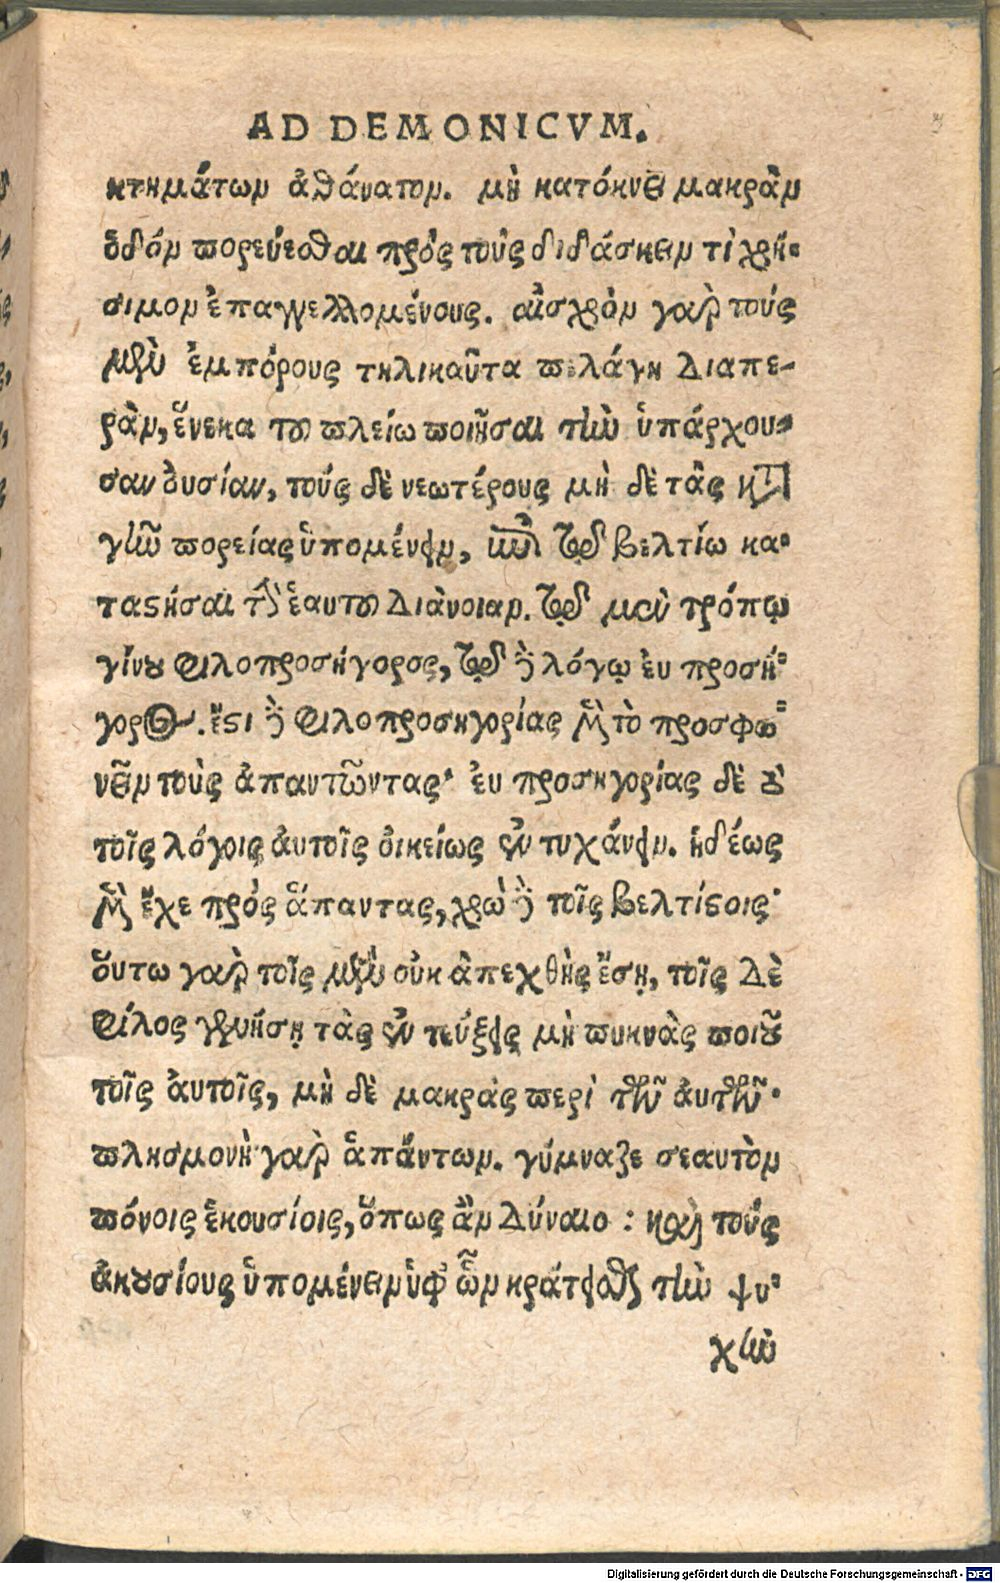 AD DEMONICVM.
κτημάτων ἀθάνατον. μὴ κατόκνει μακρὰν
ὁδὸν πορεύεσθαι πρὸς τοὺς διδάσκειν τὶ χρή-
σιμον ἐπαγγελλομένους. αἰσχρὸν γὰρ τοὺς
μὲν ἐμπόρους τηλικαῦτα πελάγη διαπε-
ρᾶν, ἕνεκα τοῦ πλείω ποιῆσαι τὴν ὑπάρχου-
σαν ὀυσίαν, τοὺς δὲ νεωτέρους μὴ δὲ τὰς κατὰ
γῆν πορείας ὑπομένειν, ἐπὶ τῷ βελτίω κα-
ταστῆσαι τὴν ἑαυτοῦ διάνοιαν. τῷ μὲν τρόπῳ
γίνου φιλοπροσήγορος, τῷ δὲ λόγῳ ἐυ προσή-
γορος. ἔστι δὲ φιλοπροσηγορίας μὲν τὸ προσφω-
νεῖν τοὺς ἀπαντῶντας· ἐυ προσηγορίας δὲ τὸ
τοῖς λόγοις ἀυτοῖς ὀικείως ἐντυχάνειν. ἡδέως
μὲν ἔχε πρὸς ἅπαντας, χρῶ δὲ τοῖς βελτίστοις·
ὅυτω γὰρ τοῖς μὲν οὐκ ἀπεχθὴς ἔσῃ, τοῖς δὲ
φίλος γενήσῃ τὰς ἐντεύξεις μὴ πυκνὰς ποιοῦ
τοῖς ἀυτοῖς, μὴ δὲ μακρὰς περὶ τῶν ἀυτῶν·
πλησμονὴ γὰρ ἁπάντων. γύμναζε σεαυτὸν
πόνοις ἑκουσίοις, ὅπως ἂν δύναιο : καὶ τοὺς
ἀκουσίους ὑπομένειν ὑφ' ὧν κρατεῖσθαι τὴν ψυ-
χὴν
Digitalisierung gefördert durch die Deutsche Forschungsgemeinschaft - DFG